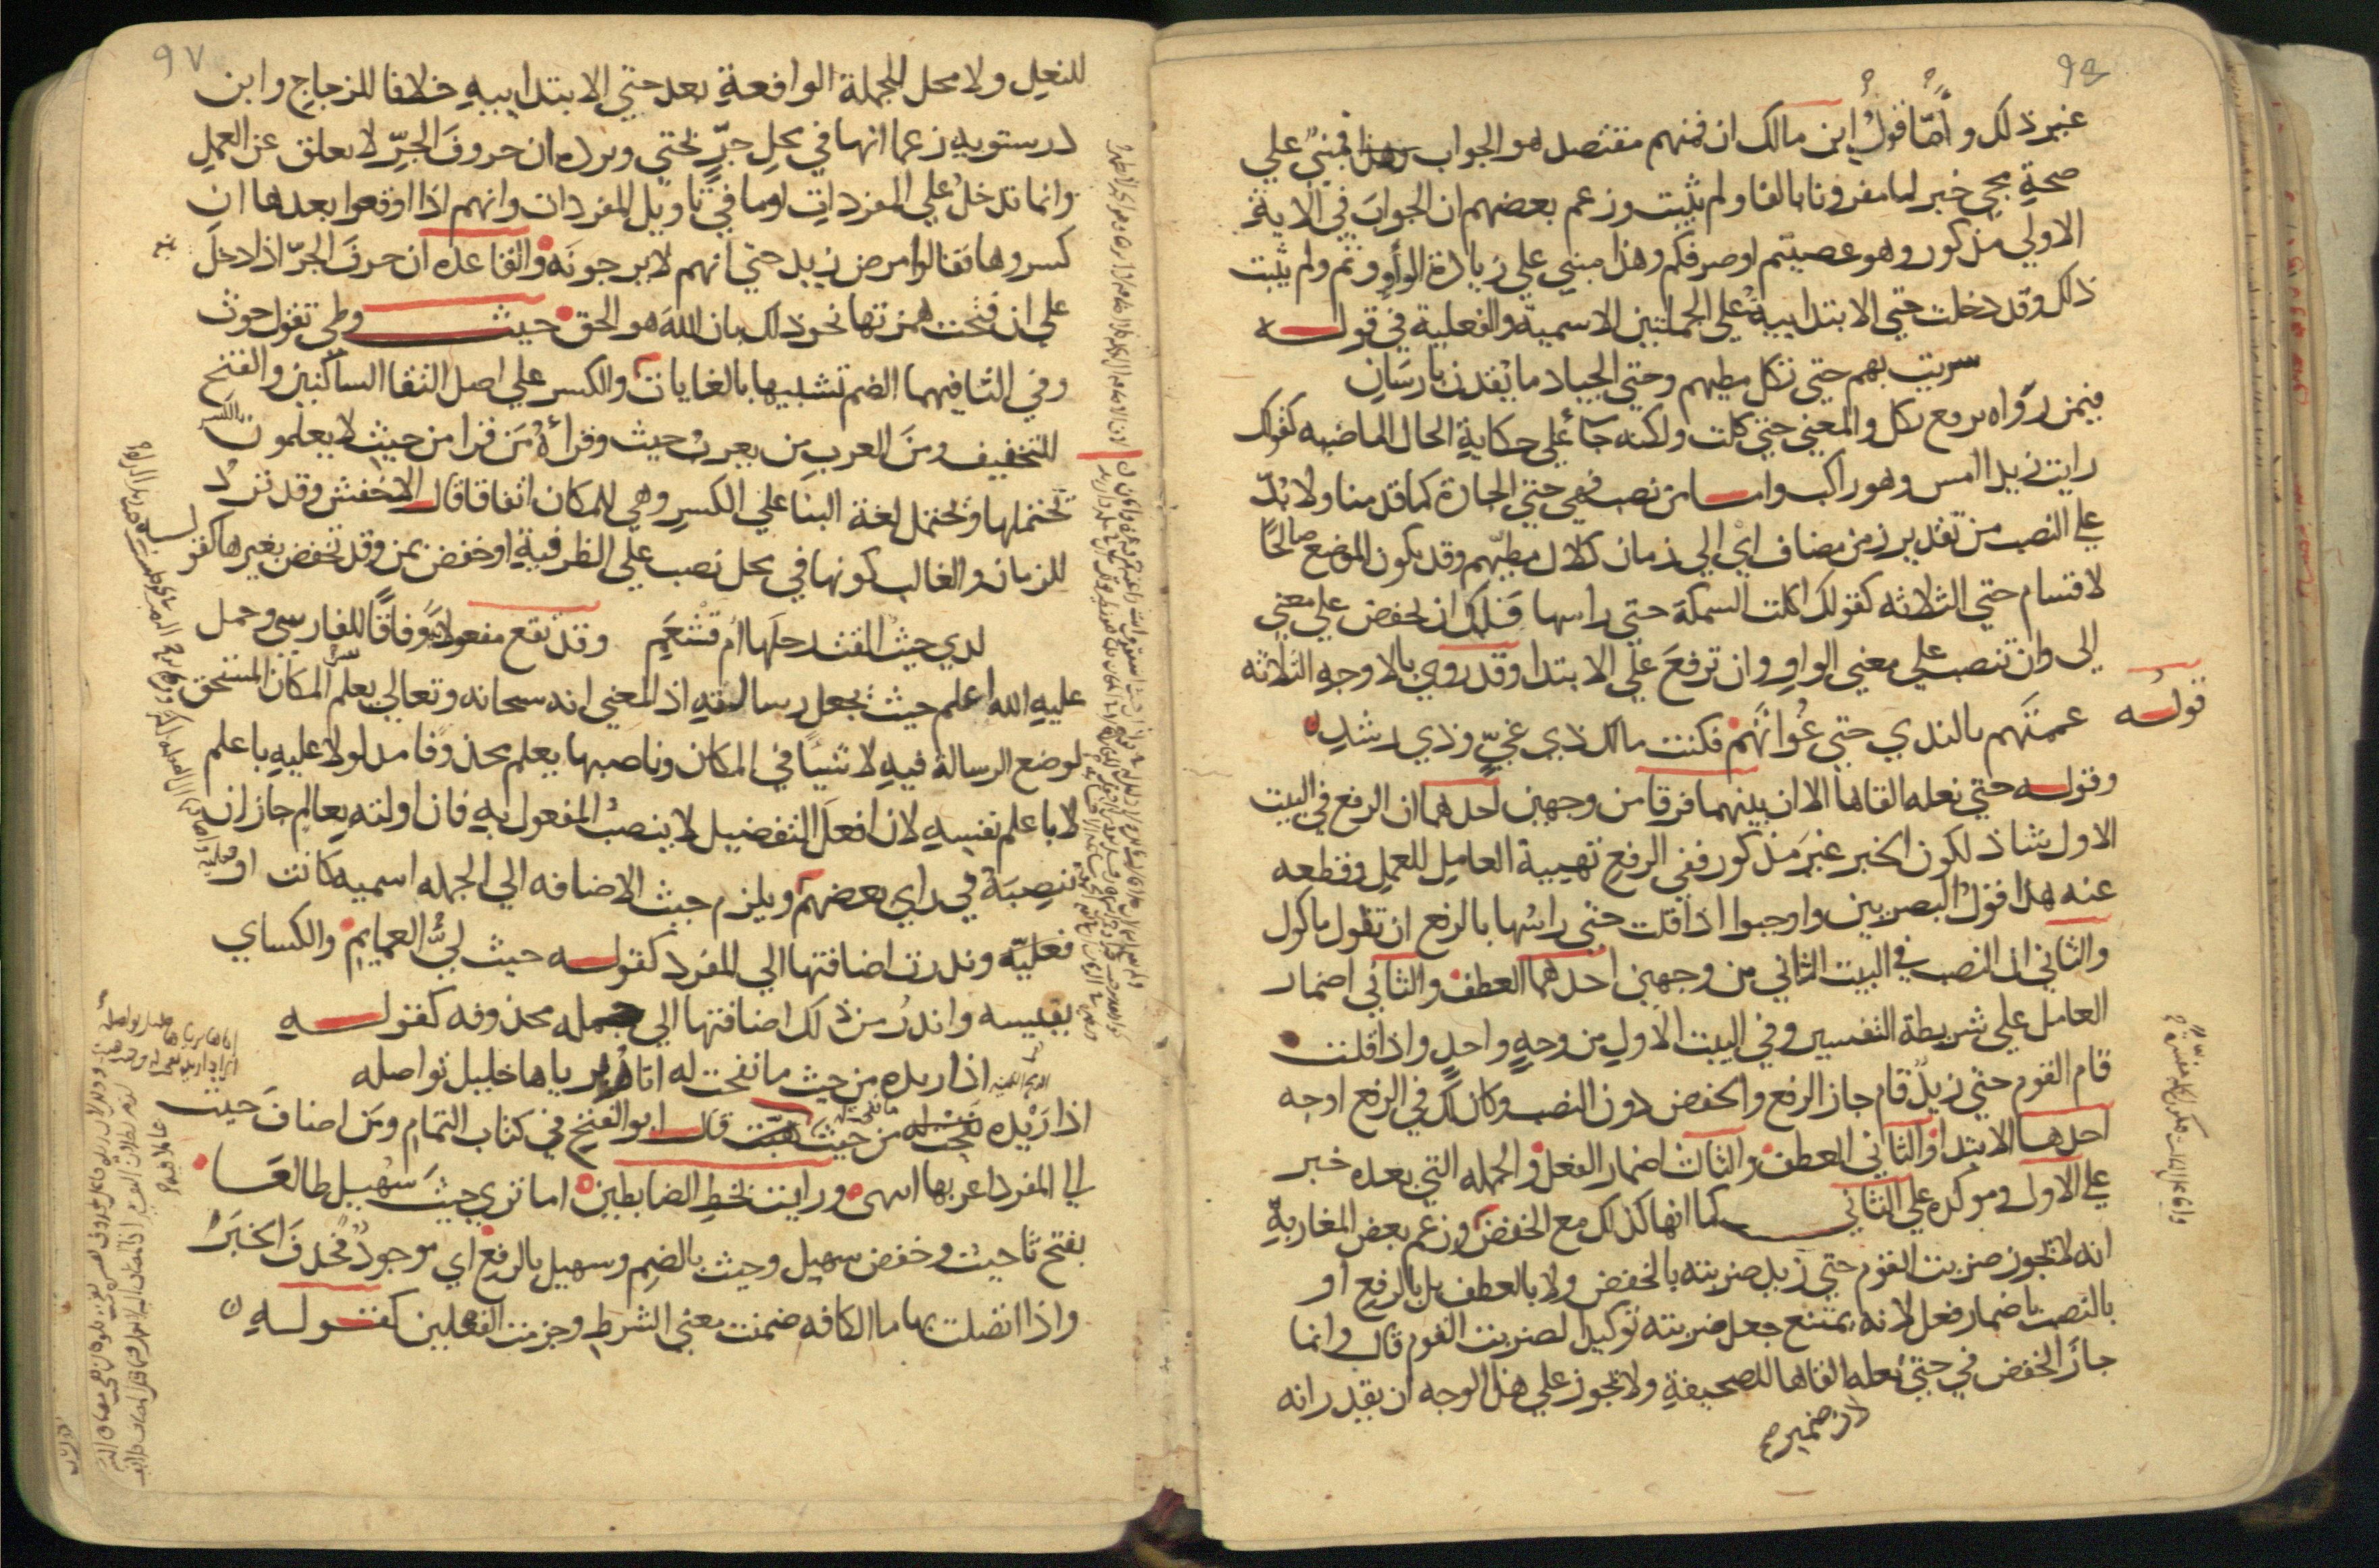 غير ذلك واما قول ابن مالك ان فمنهم مقتصد هو الجواب فمبني علي
صحة مجي خبر لما مقرونا بالفا ولم يثبت وزعم بعضهم ان الجواب في الاية
الاولي مذكور وهو عصيتم او صرفكم وهذا مبني علي زيادة الواو وثم ولم يثبت
ذلك وقد دخلت حتي الابتدايية علي الجملتين الاسمية والفعلية في قولـــه
سريت بهم حتي تكل مطيهم وحتي الجياد ما يقدن بارسان
فيمن رواه برفع تكل والمعني حتي كلت ولكنه جا علي حكاية الحال الماضيه كقولك
رايت زيدا امس وهو راكب واما من نصب فهي حتي الجارة كما قدمنا ولا بد
علي النصب من تقدير زمن مضاف اي الي زمان كلال مطيهم وقد يكون الموضع صالحا
لاقسام حتي الثلاثه كقولك اكلت السمكة حتي راسها فلك ان تخفض علي معني
الي وان تنصب علي معني الواو وان ترفع علي الابتدا وقد روي بالاوجه الثلاثه
قولـــه عممتهم بالندي حتي غواتهم فكنت مالك ذي غي وذي رشد
وقولـــه حتي نعله القاها الا ان بينهما فرقا من وجهين احدهما ان الرفع في البيت
الاول شاذ لكون الخبر غير مذكور ففي الرفع تهيية العامل للعمل وقطعه
عنه هذا قول البصريين واوجبوا اذا قلت حتي راسها بالرفع ان تقول ماكول
والثاني ان النصب في البيت الثاني من وجهين احدهما العطف والثاني اضمار
العامل علي شريطة التفسير وفي البيت الاول من وجه واحد واذا قلت
قام القوم حتي زيد قام جاز الرفع والخفض دون النصب وكان لك في الرفع اوجه
احدها الابتدا والثاني العطف والثالث اضمار الفعل والجمله التي بعده خبر
علي الاول وموكده علي الثاني كما انها كذلك مع الخفض وزعم بعض المغاربة
انه لا يجوز ضربت القوم حتي زيد ضربته بالخفض ولا بالعطف بل بالرفع او
بالنصب باضمار فعل لانه يمتنع جعل ضربته توكيدا لضربت القوم قال وانما
جاز الخفض في حتي نعله القاها للصحيفة ولا يجوز علي هذا الوجه ان يقدر انه
لان ضمير
٩٧
للنعل ولا محل للجملة الواقعة بعد حتي الابتدايية خلافا للزجاج وابن
درستويه زعما انها في محل جر بحتي ويرده ان حروف الجر لا تعلق عن العمل
وانما تدخل علي المفردات او ما في تاويل المفردات وانهم اذا اوقعوا بعدها ان
كسروها فقالوا مرض زيد حتي انهم لا يرجونه والقاعده ان حرف الجر اذا دخل
علي ان فتحت همزتها نحو ذلك بان الله هو الحق حيث وطي تقول حوث
وفي الثا فيهما الضم تشبيها بالغايات والكسر علي اصل التقا الساكنين والفتح
للتخفيف ومن العرب من يعرب حيث وقراءة من قرا من حيث لا يعلمون بالكسر
تحتملها وتحتمل لغة البنا علي الكسر وهي للمكان اتفاقا قال الاخفش وقد ترد
للزمان والغالب كونها في محل نصب علي الظرفية او خفض بمن وقد تخفض بغيرها كقولـــه
لدي حيث القت رحلها ام قشعم وقد تقع مفعولا به وفاقا للفارسي وحمل
عليه الله اعلم حيث يجعل رسالته اذ المعني انه سبحانه وتعالي يعلم المكان المستحق
لوضع الرسالة فيه لا شيا في المكان وناصبها يعلم محذوفا مدلولا عليه باعلم
لا باعلم نفسه لان افعل التفضيل لا ينصب المفعول به فان اولته بعالم جاز ان
تنصبه في راي بعضهم ويلزم حيث الاضافه الي الجمله اسميه كانت او
فعليه وندرت اضافتها الي المفرد كقولـــه حيث لي العمايم والكساي
يقيسه واندر من ذلك اضافتها الي جمله محذوفه كقولـــه
اذا ريده من حيث ما نفحت له اتاه برياها خليل تواصله
اذا ريده نفحت له من حيث هبت قال ابو الفتح في كتاب التمام ومن اضاف حيث
الي المفرد اعربها انتهي ورايت بخط الضابطين اما تري حيث سهيل طالعـــا
بفتح ثا حيث وخفض سهيل وحيث بالضم وسهيل بالرفع اي موجود فحذف الخبر
واذا اتصلت بها ما الكافه ضمنت معني الشرط وجزمت الفعلين كقولـــه